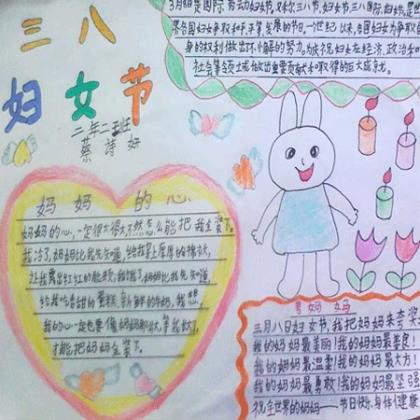 三八
妇女节
二年二班
蔡诗妍
3月8日是国际劳动妇女节,又称三八节、妇女节、三八国际妇女节,是世
界各国妇女争取和平、平等、发展的节日。一世纪以来,各国妇女为争取自
身的权利做出不小解的努力。为庆祝妇女在经济、政治和
社会等领域做出重要贡献和取得的巨大成就。
妈妈的心
妈妈的心,一定很大很大,不然怎么能把我全装了。
我冷了,妈妈比我先知道,给我穿上厚厚的棉袄,
让我露出红红的脸板;我饿了,妈妈比我先知道,
给我吃香甜的蛋糕,新鲜的牛奶,我想,
我的心一定也要像妈妈那么宽那么大,
才能把妈妈全装了。
夸妈妈
三月八日妇女节,我把妈妈来夸奖
我的妈妈最美丽!我的妈妈最善良!
我的妈妈最温柔!我的妈妈最大方!
我的妈妈最勇敢!我的妈妈最坚强
祝全世界的妈妈——节日快乐身体健康